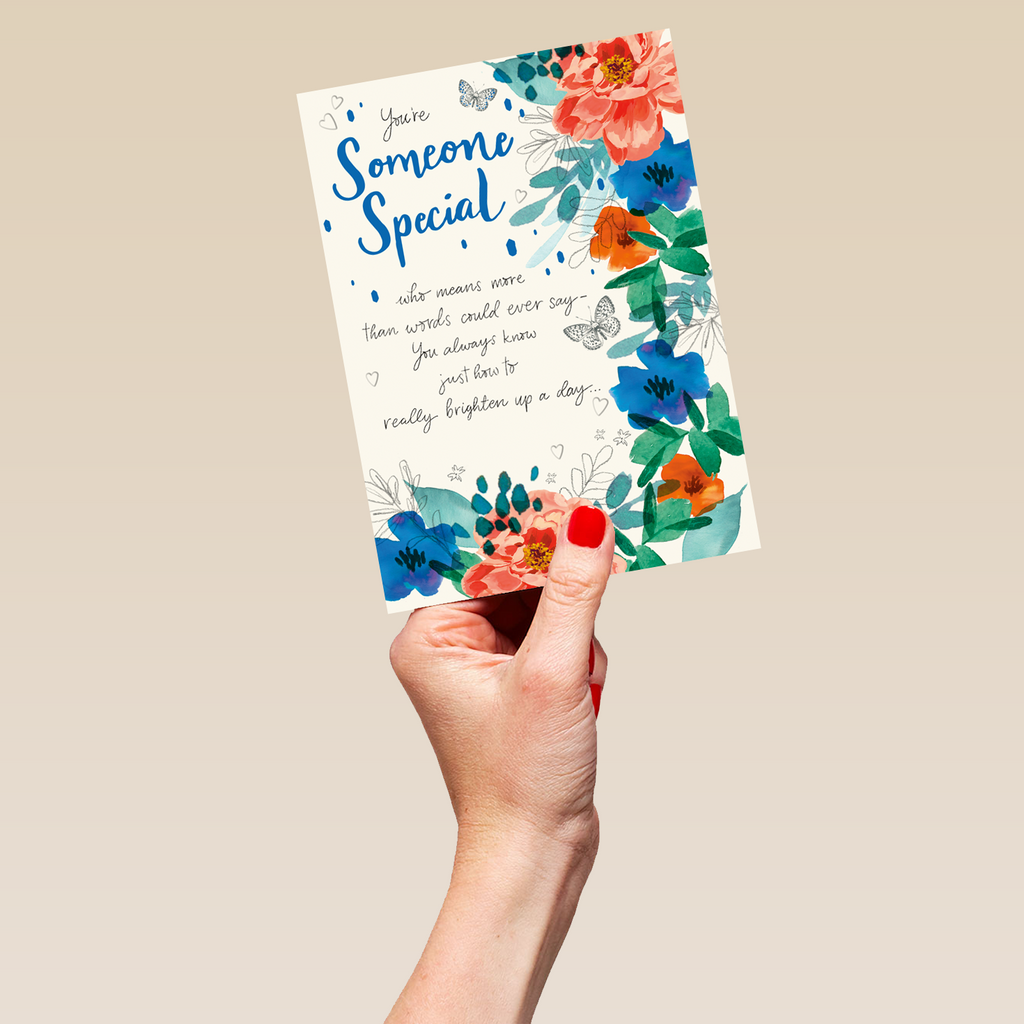 You're
Someone
Special
who means more
than words could ever say-
You always know
just how to
really brighten up a day...